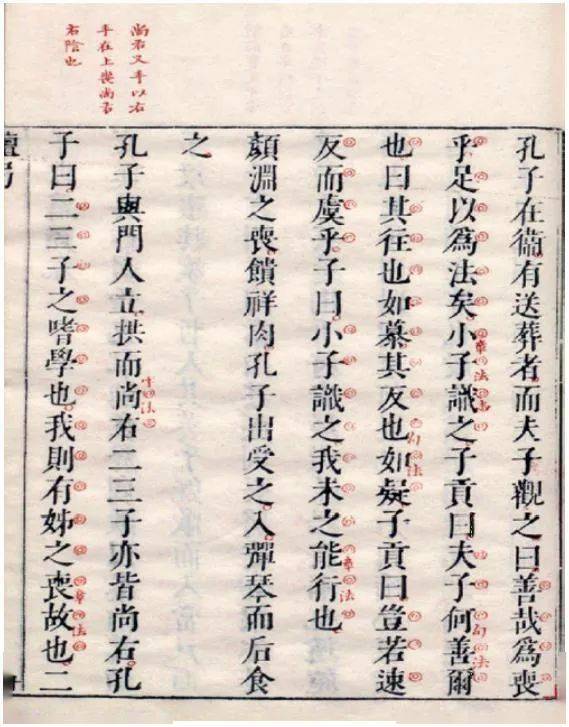 尚右叉手以右
手在上喪尚右
右陰也
孔子在衞有送葬者而夫子觀之曰善哉爲喪
乎足以爲法矣小子識之子貢曰夫子何善爾
也曰其往也如慕其反也如疑子貢曰豈若速
反而虞乎子曰小子識之我未之能行也
顏淵之喪饋祥肉孔子出受之入彈琴而后食
之
孔子與門人立拱而尚右二三子亦皆尚右孔
子曰二三子之嗜學也我則有姊之喪故也二
章法
句法
句法
章法
字法
章法
檀弓